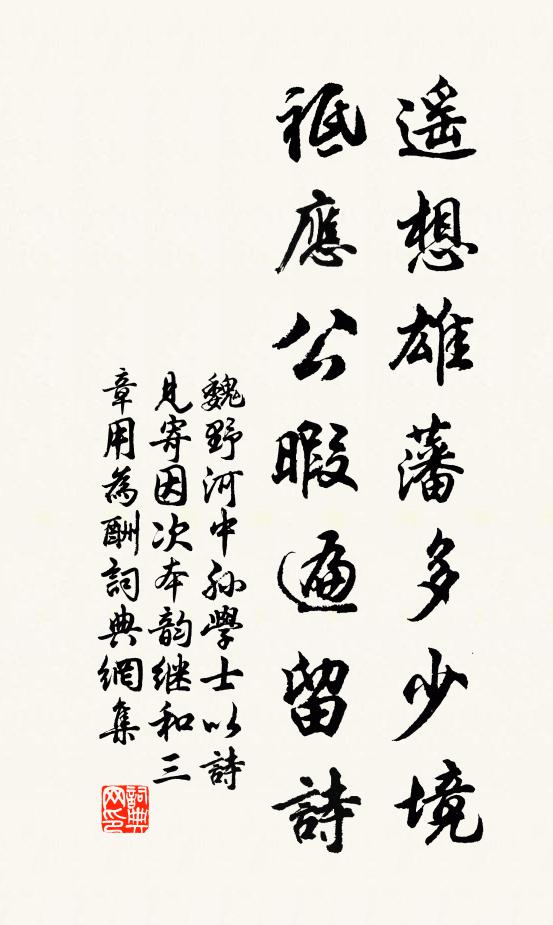 遥想雄藩多少境
祗應公暇遍留詩
魏野河中孙學士以詩
見寄因次本韵继和三
章用為酬詞典網集
詞典网印